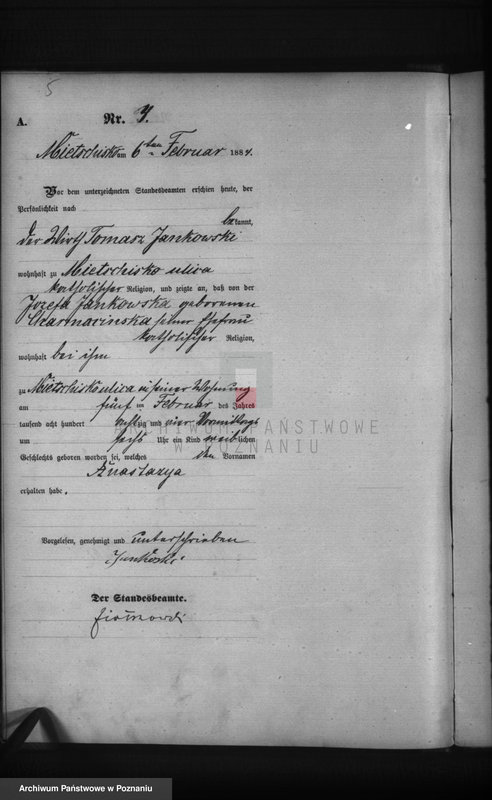 5
A.
Nr. 7.
Mietschisko am 6ten Februar 1884.
Vor dem unterzeichneten Standesbeamten erschien heute, der
Persönlichkeit nach
bekannt,
der Wirth Tomasz Jankowski
wohnhaft zu Mietschisko ulica
katholischer Religion, und zeigte an, daß von der
Jozefa Jankowska geborenen
seiner Ehefrau
katholischer Religion,
wohnhaft bei ihm
zu Mietschisko ulica in seiner Wohnung
am fünf ten Februar des Jahres
tausend acht hundert achtzig und vier Vormittags
um sechs Uhr ein Kind weiblichen
Geschlechts geboren worden sei, welches den Vornamen
Anastazya
erhalten habe.
Vorgelesen, genehmigt und unterschrieben
Der Standesbeamte.
ARCHIWUM PAŃSTWOWE
W POZNANIU
Archiwum Państwowe w Poznaniu